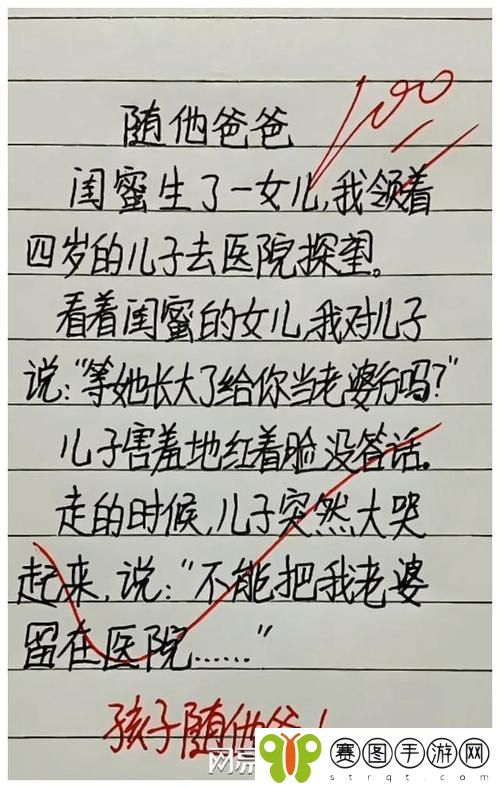 100
随他爸爸
闺蜜生了一女儿,我领着
四岁的儿子去医院探望。
看着闺蜜的女儿,我对儿子
说:“等她长大了给你当老婆行吗?”
儿子害羞地红着脸没答话.
走的时候,儿子突然大哭
起来,说:“不能把我老婆
留在医院......”
孩子随他爸!
网易
赛图手游网
strqt.com